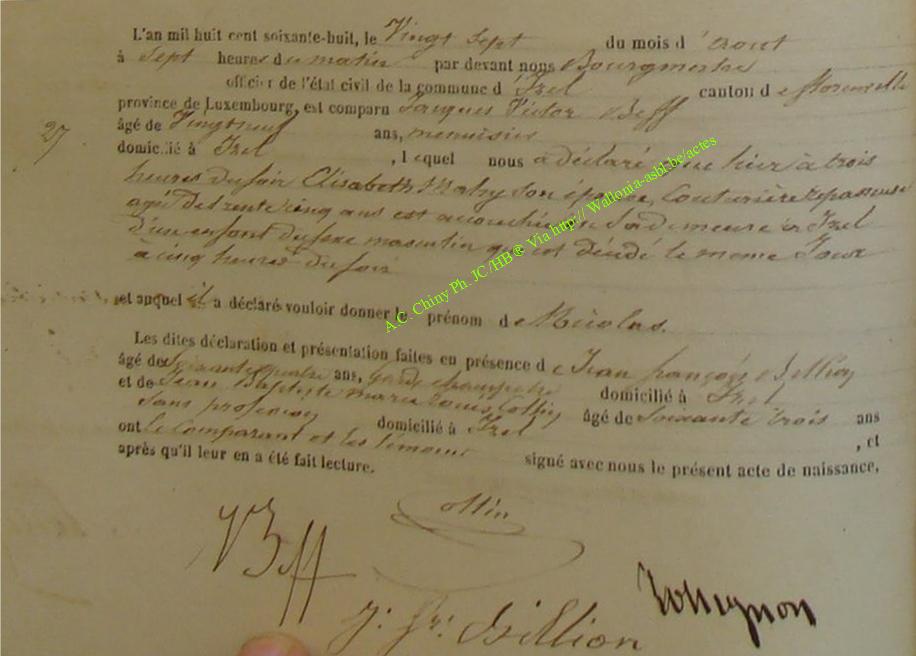 L'an mil huit cent soixante-huit, le Vingt Sept du mois d'août
à Sept heures du matin par devant nous Bourgmestre
officier de l'état civil de la commune d'Izel canton de Florenville
province de Luxembourg, est comparu Jacques Victor Beff
27 âgé de Vingtneuf ans, menuisier
domicilié à Izel, lequel nous a déclaré que hier à trois
heures du soir Elisabeth son épouse, Couturière repasseuse
agée de trente cinq ans est accouchée en Sa demeure à Izel
D'un enfant du sexe masculin qui est décédé le meme Jour
à cinq heures du soir
et auquel il a déclaré vouloir donner le prénom de Nicolas.
Les dites déclaration et présentation faites en présence de Jean françois Billion
âgé de Soixante quatre ans, garde champêtre domicilié à Izel
et de Jean Baptiste marie Louis Collin âgé de Soixante trois ans
Sans profession domicilié à Izel
ont le Comparant et les témoins, et
signé avec nous le présent acte de naissance,
après qu'il leur en a été fait lecture.
ollin
VBeff
J. Fr. Billion
A.C. Chiny Ph. JC /HB ® Via http:// Wallonia-asbl.be/actes